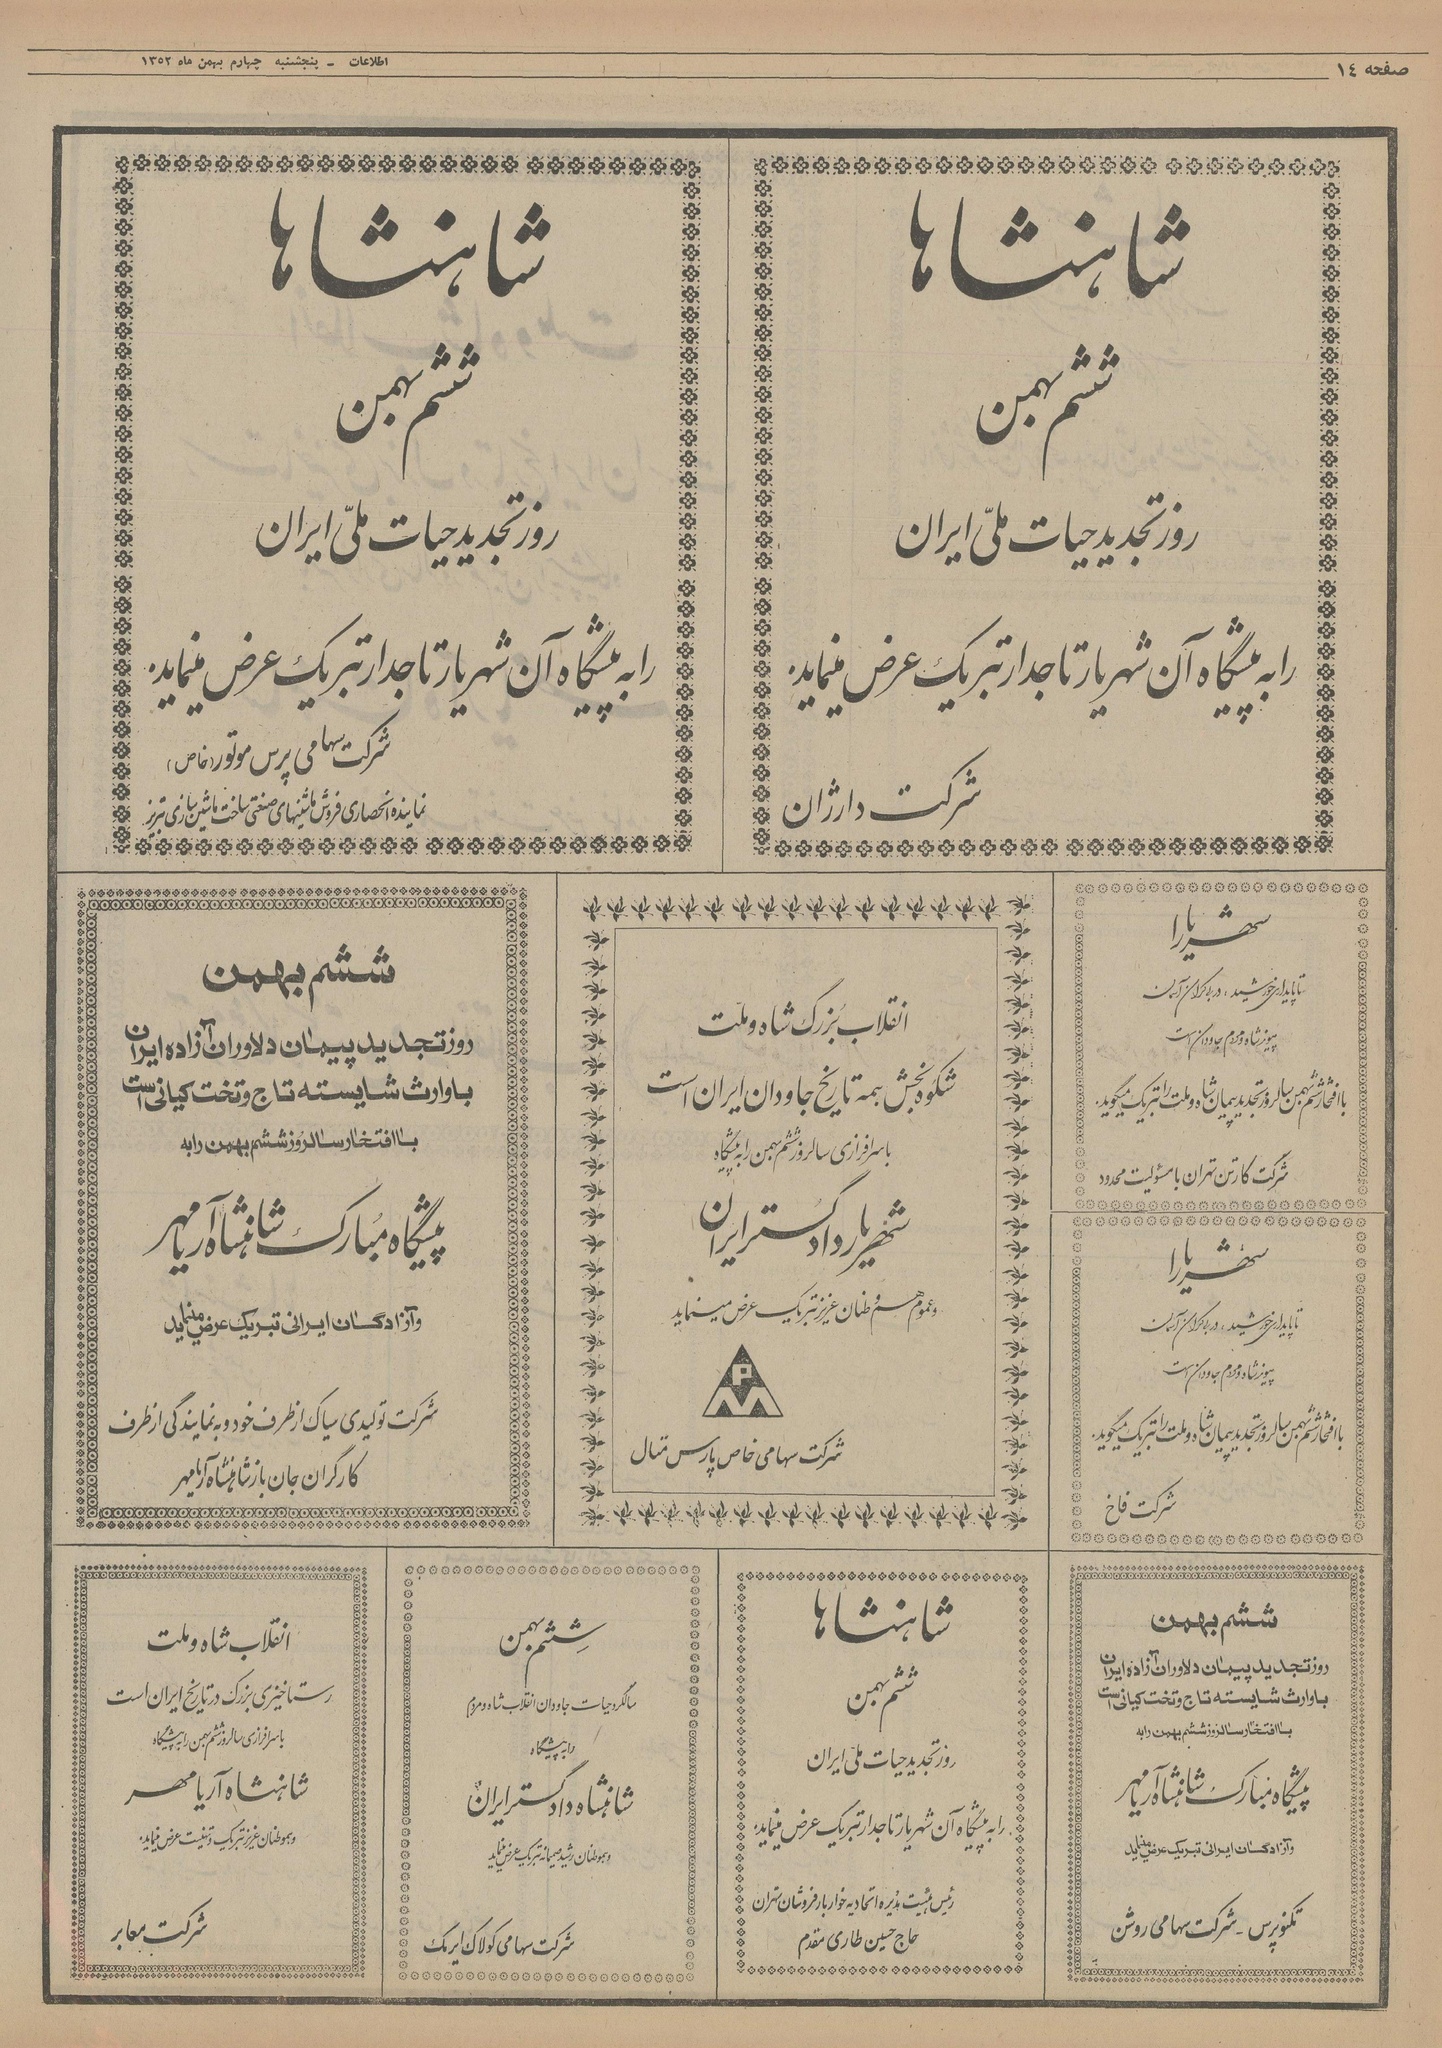 صفحه ١٤
اطلاعات - پنجشنبه چهارم بهمن ماه ١٣٥٢
شاهنشاها
ششم بهمن
روز تجدید حیات ملّی ایران
را به پیشگاه آن شهریار تاجدار تبریک عرض مینماید.
شرکت دارژان
شاهنشاها
ششم بهمن
روز تجدید حیات ملّی ایران
را به پیشگاه آن شهریار تاجدار تبریک عرض مینماید.
شرکت سهامی پرس موتور (خاص)
نماینده انحصاری فروش ماشینهای صنعتی ساخت ماشین سازی تبریز
شهریارا
تا پایداری خورشید، در بیکران آسمان
پیوند شاه و مردم جاودان است
با افتخار ششم بهمن سالروز تجدید پیمان شاه و ملت را تبریک میگوید.
شرکت کارتن تهران با مسئولیت محدود
شهریارا
تا پایداری خورشید، در بیکران آسمان
پیوند شاه و مردم جاودان است
با افتخار ششم بهمن سالروز تجدید پیمان شاه و ملت را تبریک میگوید.
شرکت فاخ
انقلاب بُزرگ شاه و ملّت
شکوه بخش همه تاریخ جاودان ایران است
با سرافرازی سالروز ششم بهمن را به پیشگاه
شهریار دادگستر ایران
و عموم هم وطنان عزیز تبریک عرض مینماید
PM
شرکت سهامی خاص پارس متال
ششم بهمن
روز تجدید پیمان دلاوران آزاده ایران
با وارث شایسته تاج و تخت کیانی است
با افتخار سالروز ششم بهمن را به
پیشگاه مُبارک شاهنشاه آریامهر
و آزادگان ایرانی تبریک عرض مینماید
شرکت تولیدی سیاک از طرف خود و به نمایندگی از طرف
کارگران جان باز شاهنشاه آریامهر
ششم بهمن
روز تجدید پیمان دلاوران آزاده ایران
با وارث شایسته تاج و تخت کیانی است
با افتخار سالروز ششم بهمن را به
پیشگاه مبارک شاهنشاه آریامهر
و آزادگان ایرانی تبریک عرض مینماید
تکنوپرس - شرکت سهامی روشن
شاهنشاها
ششم بهمن
روز تجدید حیات ملّی ایران
را به پیشگاه آن شهریار تاجدار تبریک عرض مینماید.
رئیس هیئت مدیره اتحادیه خواربار فروشان تهران
حاج حسین طاری مقدم
ششم بهمن
سالگرد حیات جاودان انقلاب شاه و مردم
را به پیشگاه
شاهنشاه دادگستر ایران
و هموطنان رشید صمیمانه تبریک عرض مینماید
شرکت سهامی کولاک ایر یک
انقلاب شاه و ملت
رستاخیزی بزرگ در تاریخ ایران است
با سرافرازی سالروز ششم بهمن را به پیشگاه
شاهنشاه آریامهر
و هموطنان عزیز تبریک و تهنیت عرض مینماید.
شرکت معابر